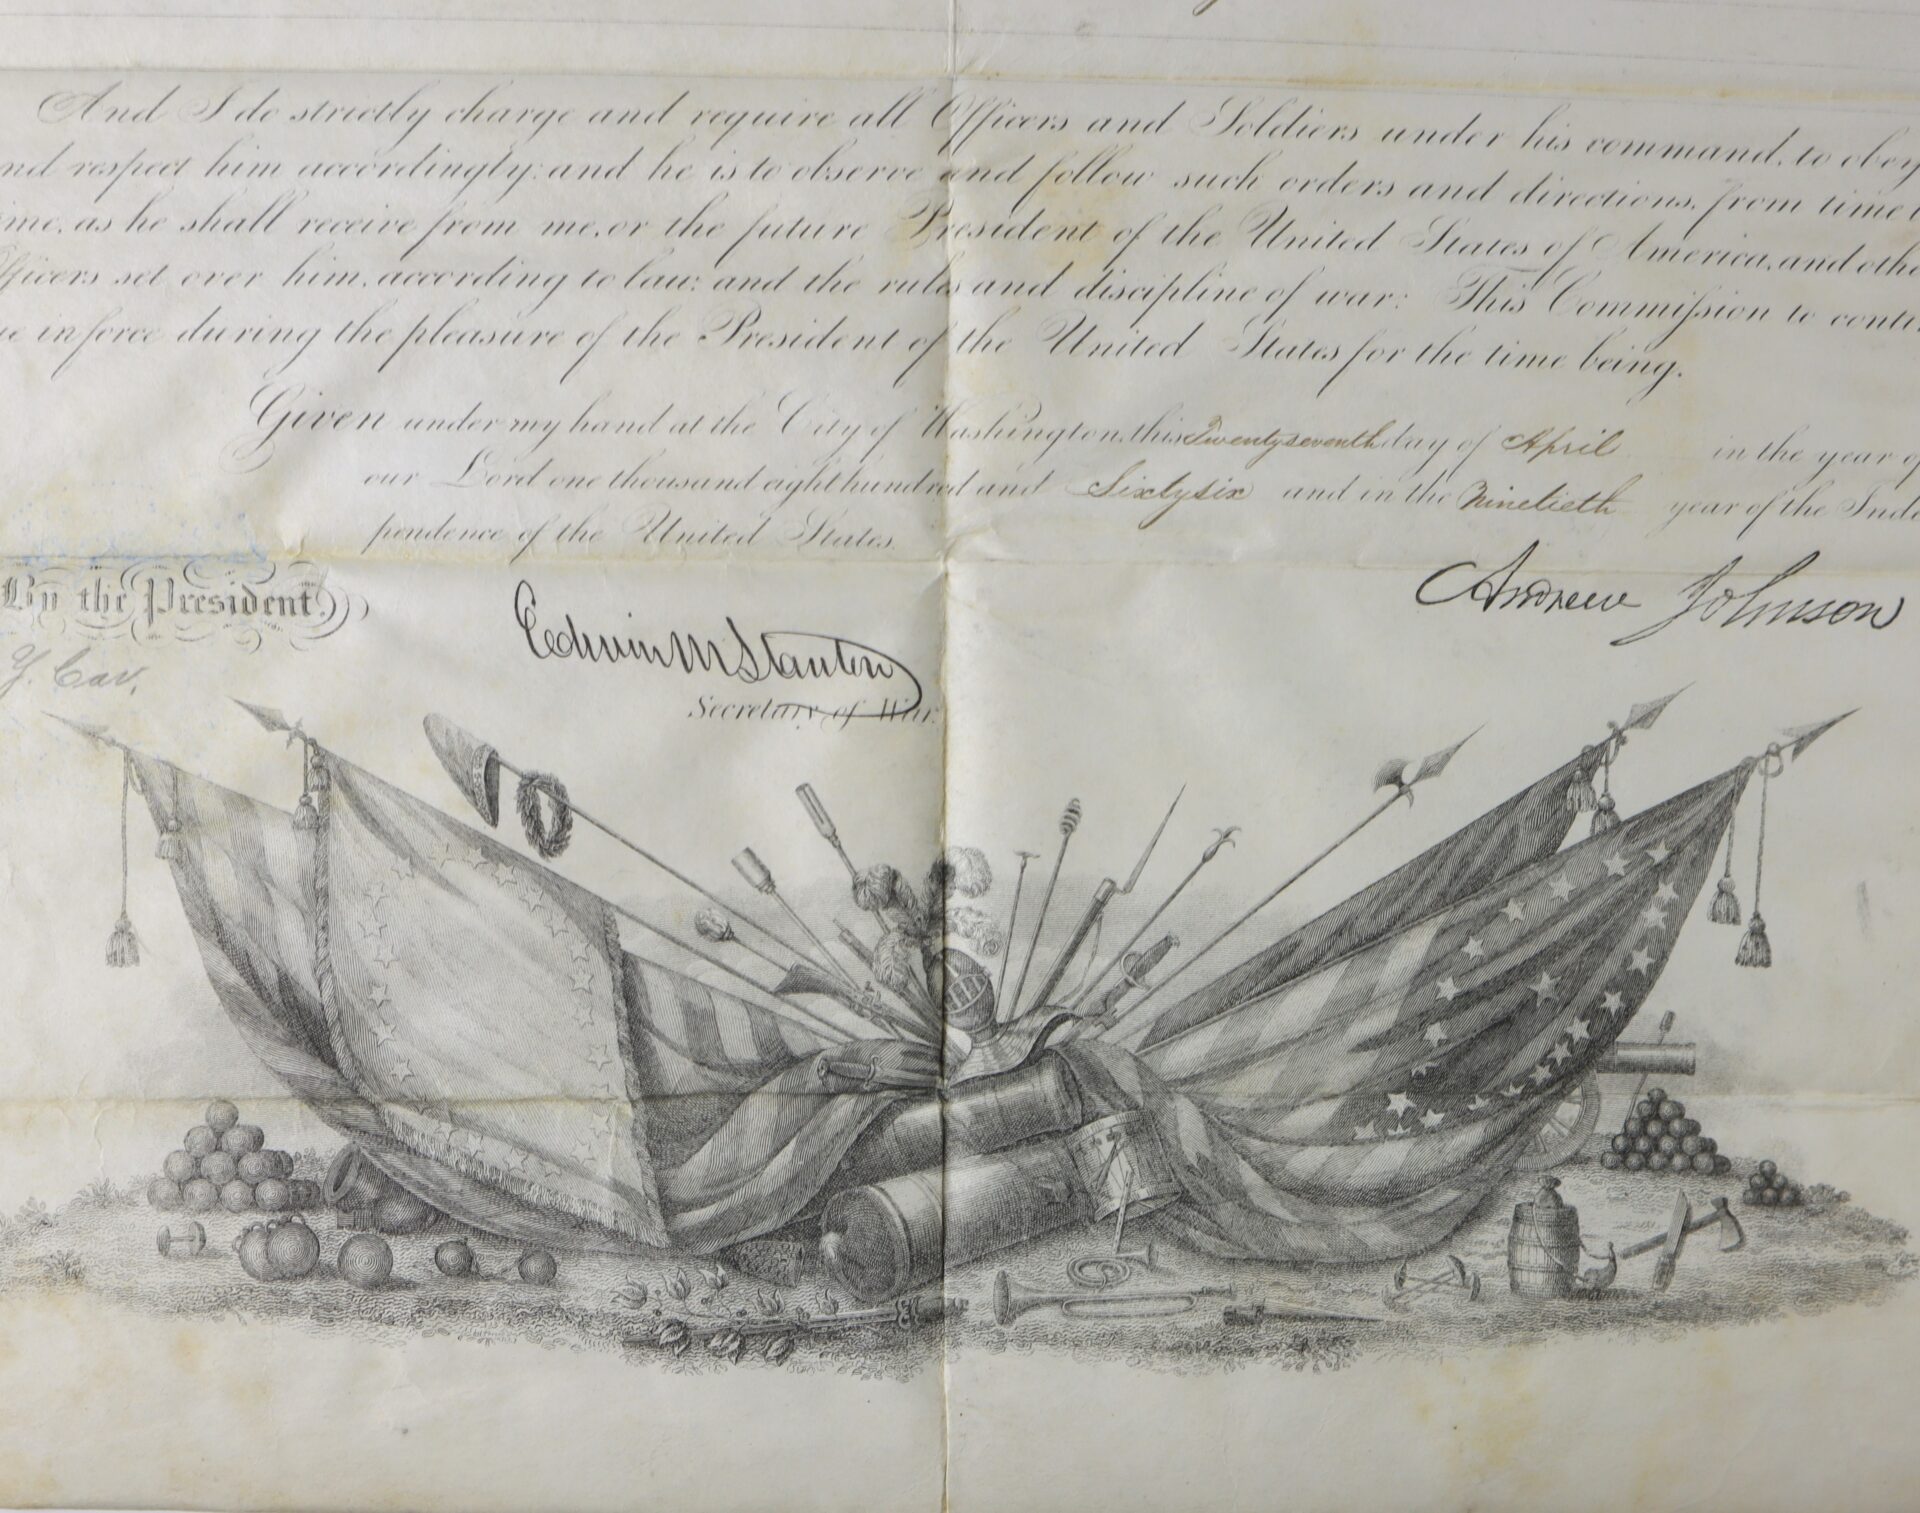 And I do strictly charge and require all Officers and Soldiers under his command, to obey
nd respect him accordingly: and he is to observe and follow such orders and directions, from time t
ime, as he shall receive from me, or the future President of the United States of America, and othe
fficers set over him, according to law: and the rules and discipline of war: This Commission to conti
ue in force during the pleasure of the President of the United States for the time being.
Given under my hand at the City of Washington, this Twentyseventh day of April in the year of
our Lord one thousand eight hundred and Sixtysix and in the Ninetieth year of the Inde
pendence of the United States.
By the President,
Andrew Johnson
Edwin M Stanton
Secretary of War.
Y. Cav,